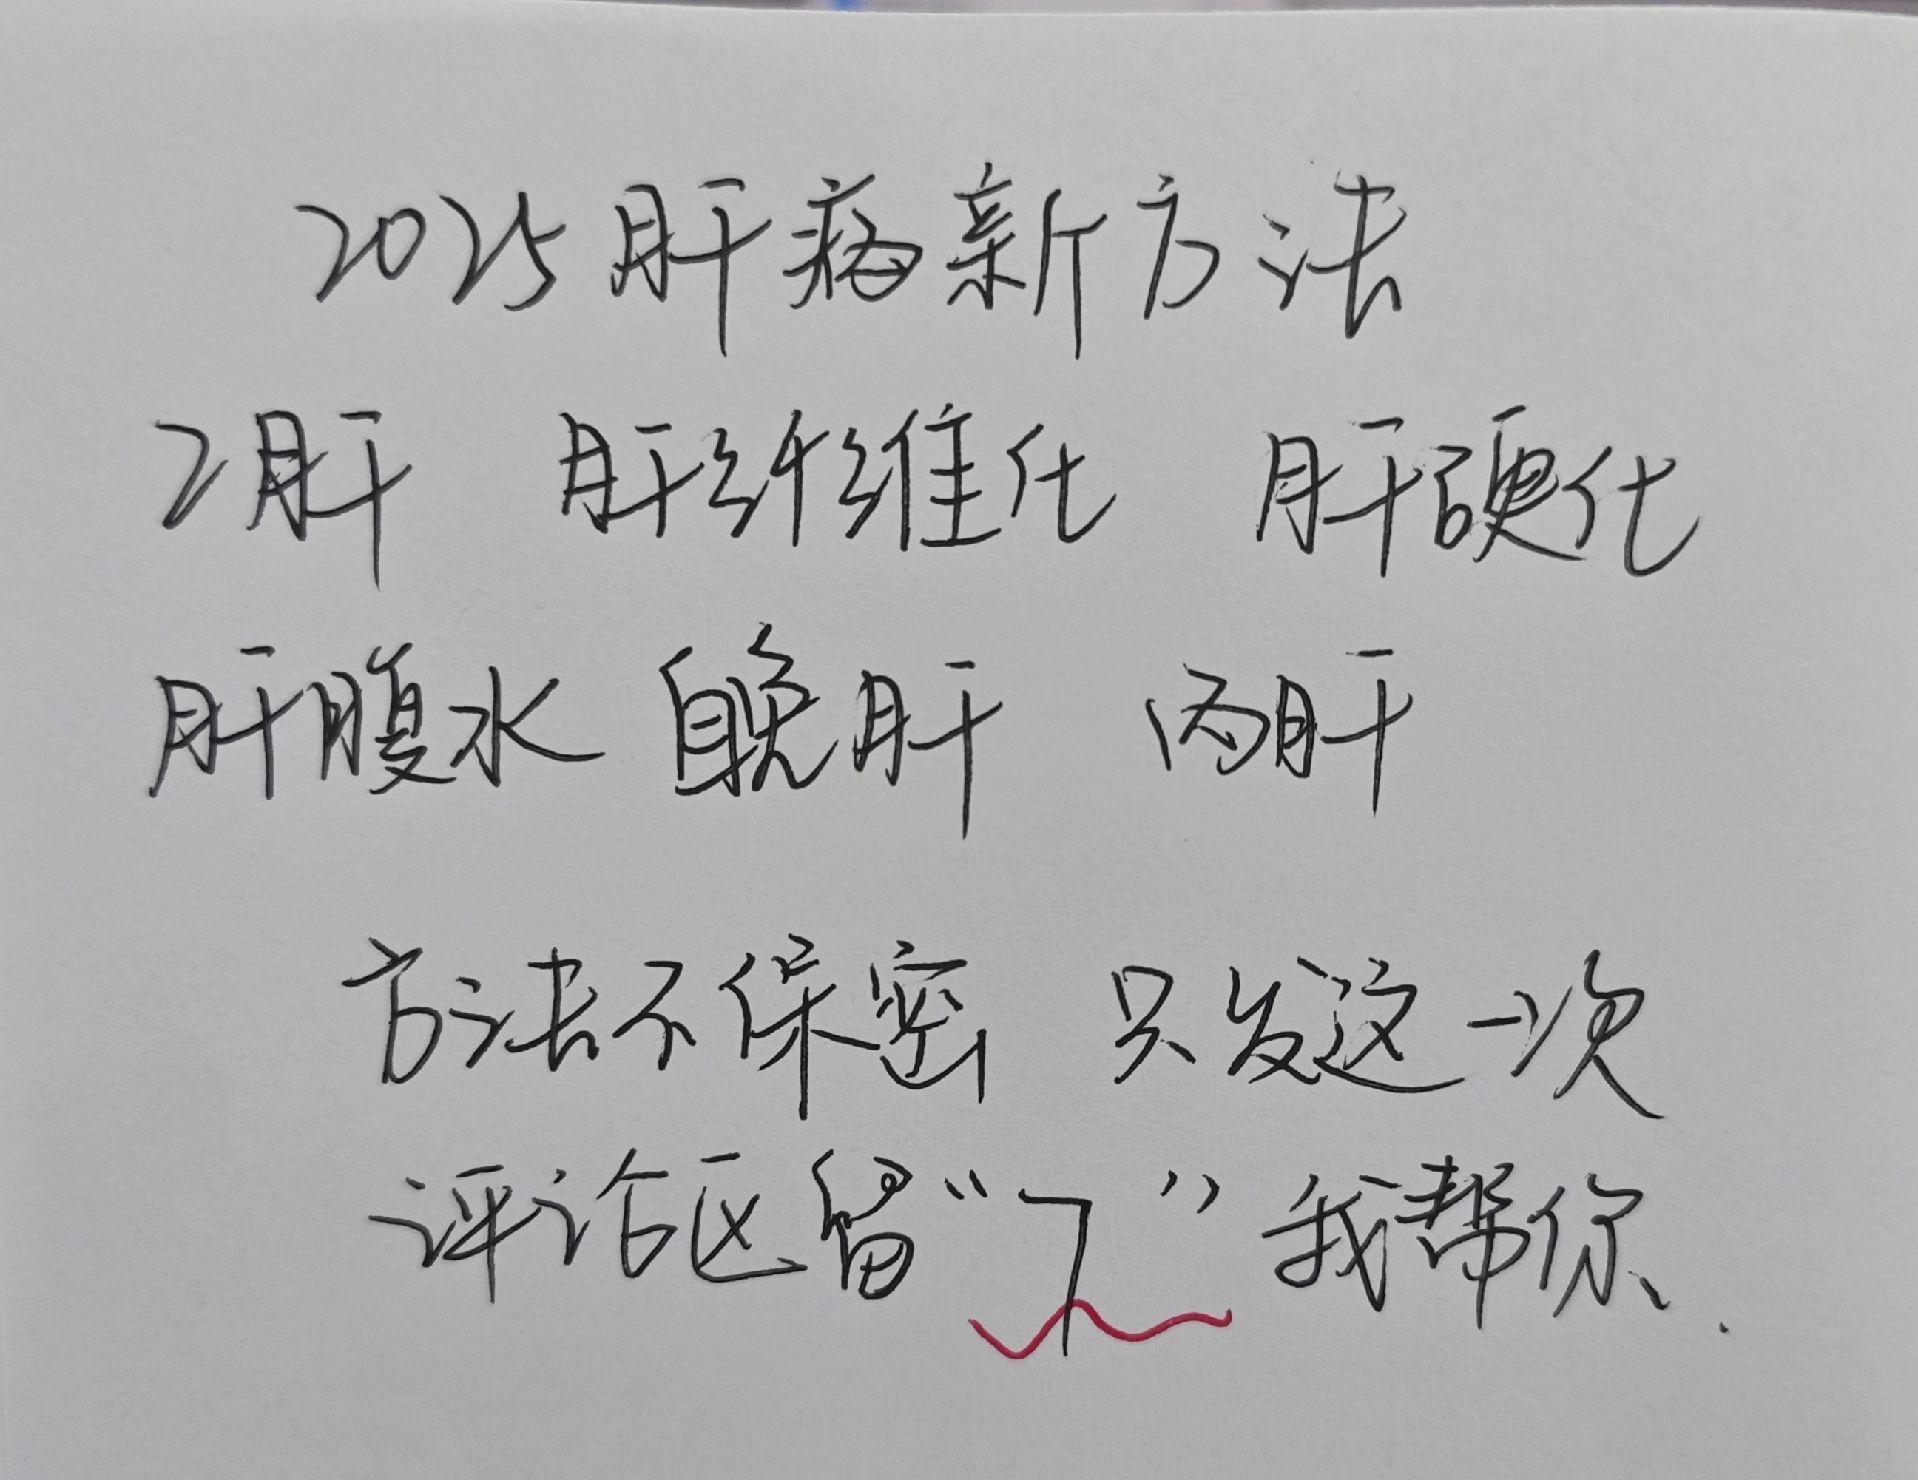 2025肝病新方法
2肝 肝纤维化 肝硬化
肝腹水 晚肝 丙肝
方法不保密 只发这一次
评论区留“了”我帮你.